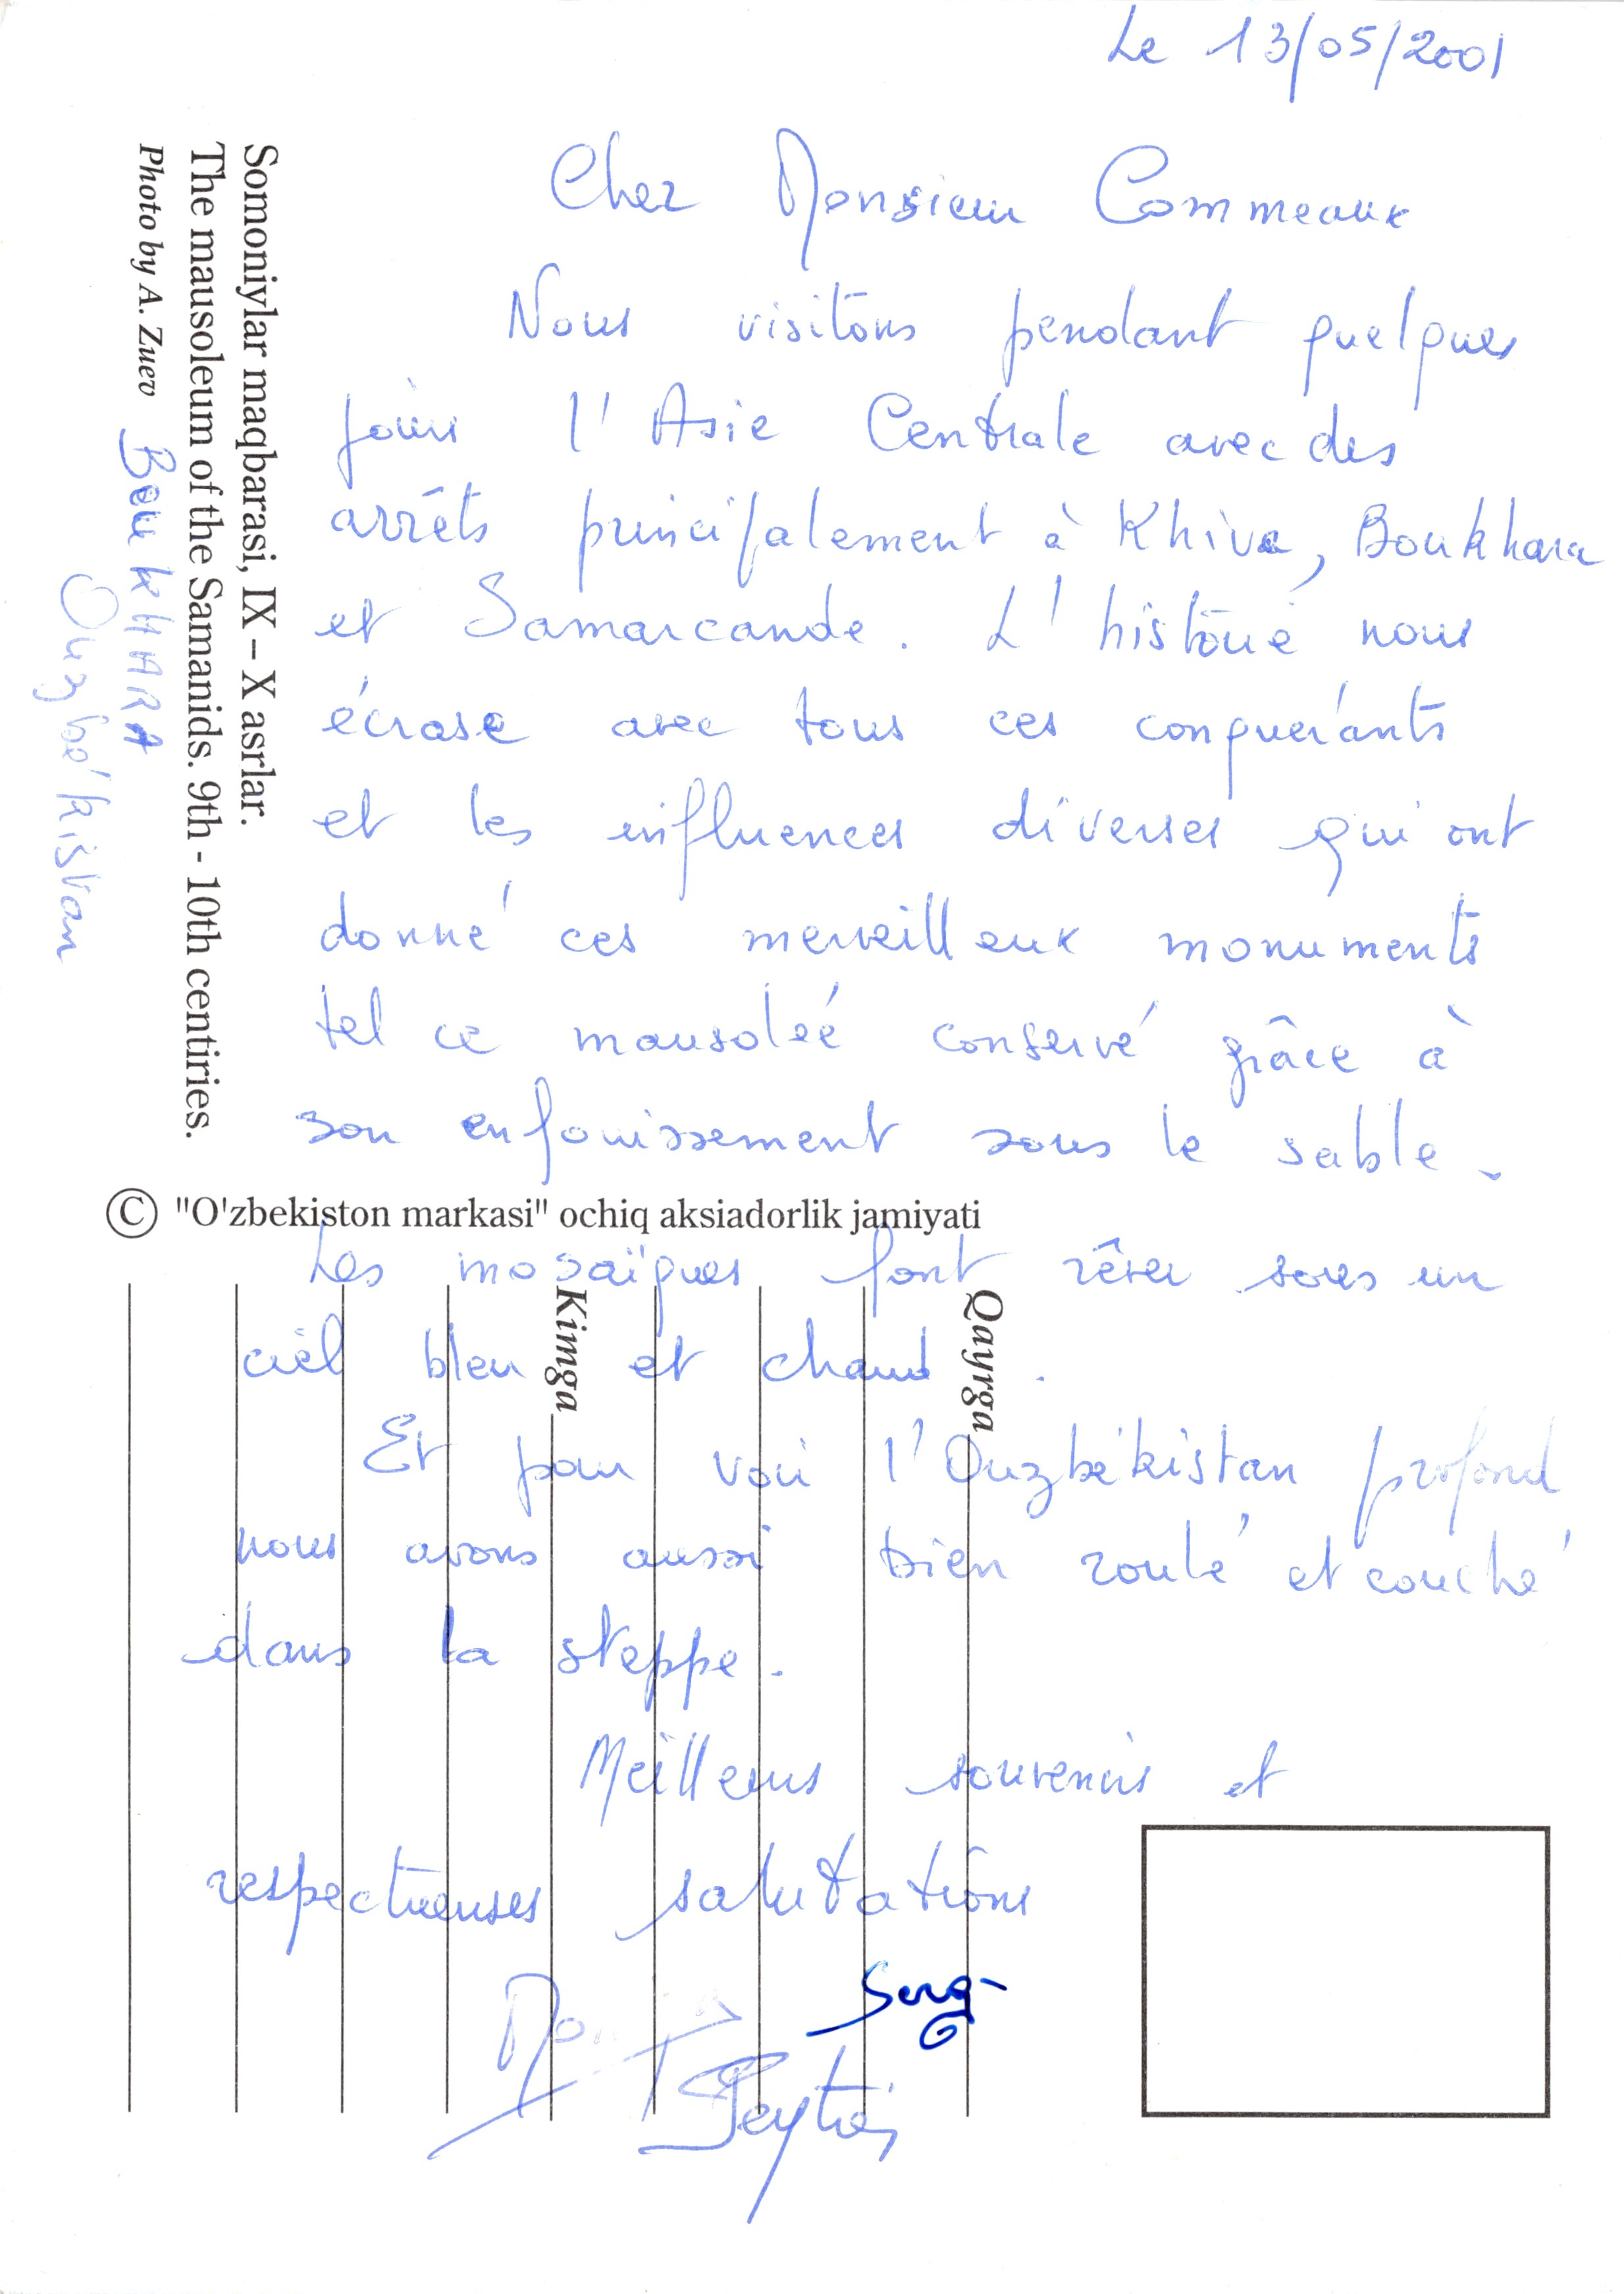 Le 13/05/2001
Cher Monsieur Commeaux
Nous visitons pendant quelques
jours l'Asie Centrale avec des
arrêts principalement à Khiva, Boukhara
et Samarcande. L'histoire nous
écrase avec tous ces conquérants
et les influences diverses qui ont
donné ces merveilleux monuments
tel ce mausolée conservé grâce à
son enfouissement sous le sable.
Les mosaïques font rêver sous un
ciel bleu et chaud.
Et pour voir l'Ouzbékistan profond
nous avons aussi bien roulé et couché
dans la steppe.
Meilleurs souvenirs et
respectueuses salutations
Somoniylar maqbarasi, IX – X asrlar.
The mausoleum of the Samanids. 9th - 10th centiries.
Photo by A. Zuev
BouKHARA
Ouzbékistan
© "O'zbekiston markasi" ochiq aksiadorlik jamiyati
Qayrga
Kimga